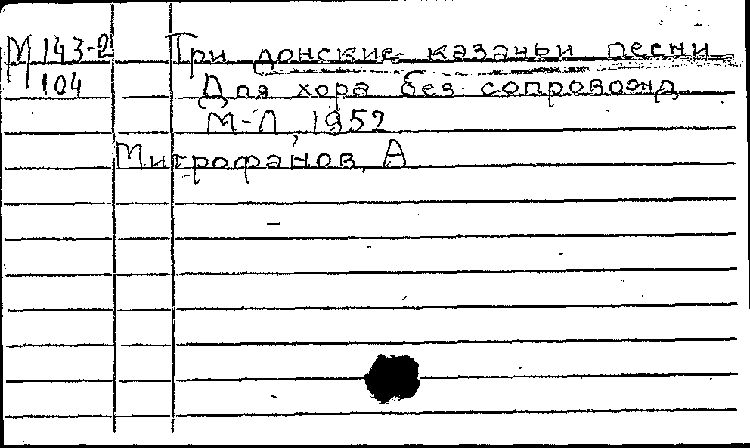 М 143-2 Три донские казачьи песни
104 Для хора без сопровожд
М-Л, 1952
Митрофанов, А